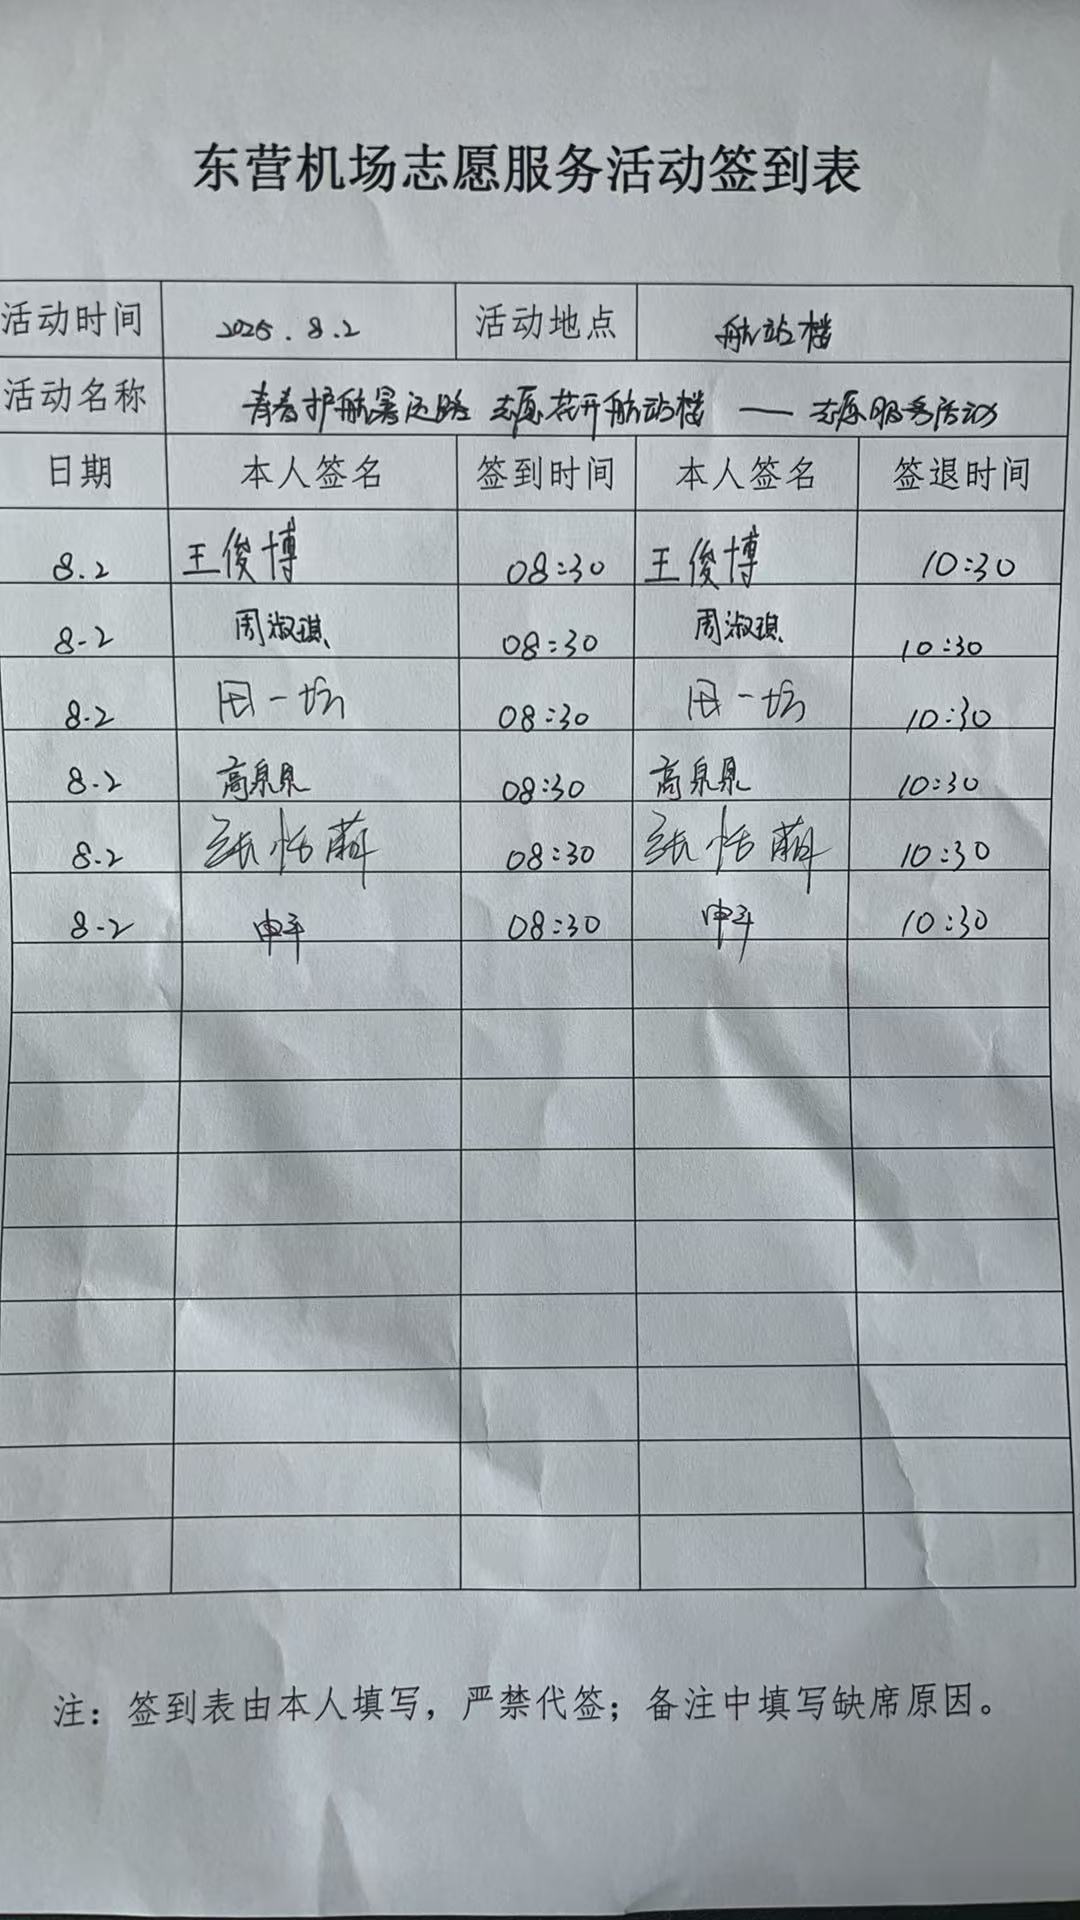 东营机场志愿服务活动签到表
活动时间 2025.8.2 活动地点 航站楼
活动名称 青春护航暑运路 志愿花开航站楼 —— 志愿服务活动
日期 本人签名 签到时间 本人签名 签退时间
8.2 王俊博 08:30 王俊博 10:30
8.2 周淑琪 08:30 周淑琪 10:30
8.2 08:30 10:30
8.2 高泉泉 08:30 高泉泉 10:30
8.2 08:30 10:30
8.2 08:30 10:30
注：签到表由本人填写，严禁代签；备注中填写缺席原因。